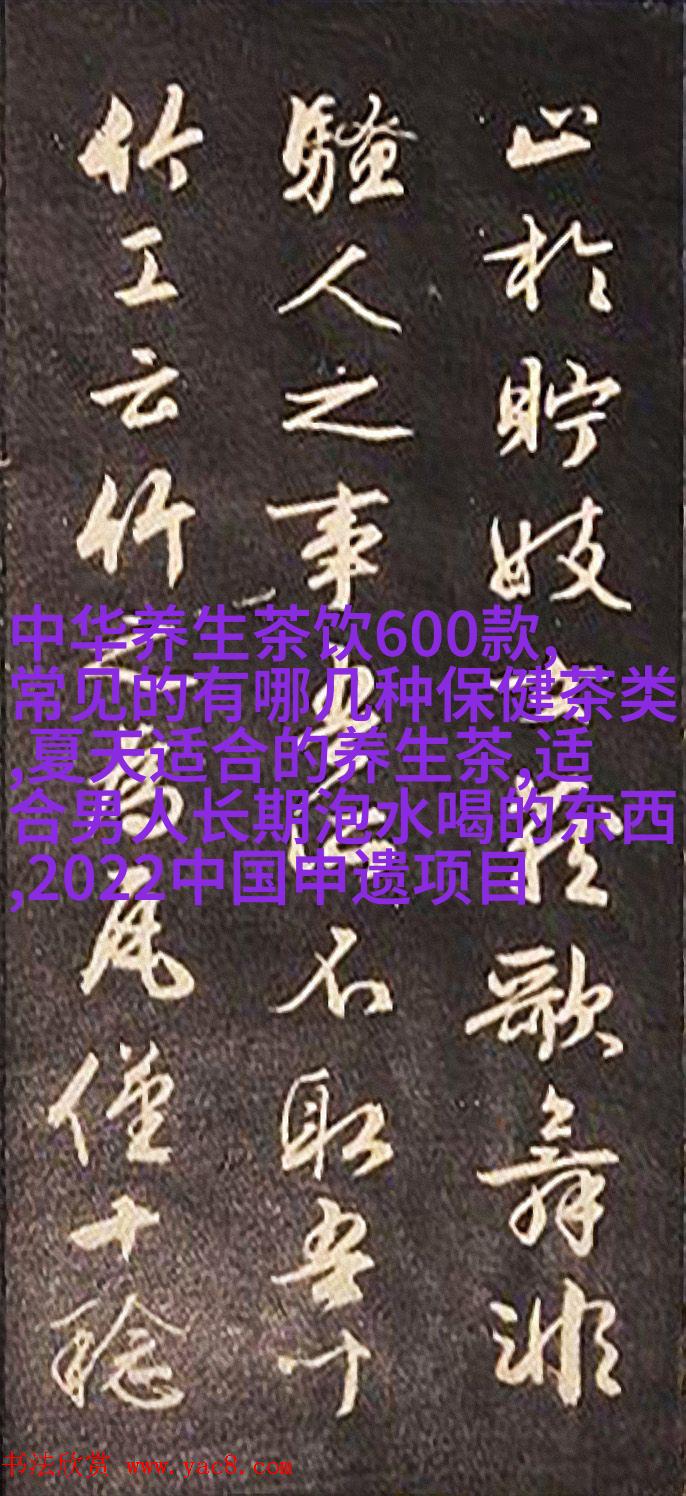 止於貯妓女藏歌舞非
騷人之事吾所不取吾聞
竹工云竹之為瓦僅十稔
中华养生茶饮600款,
常见的有哪几种保健茶类
,夏天适合的养生茶,适
合男人长期泡水喝的东西
,2022中国申遗项目
书法欣赏 www.yac8.com